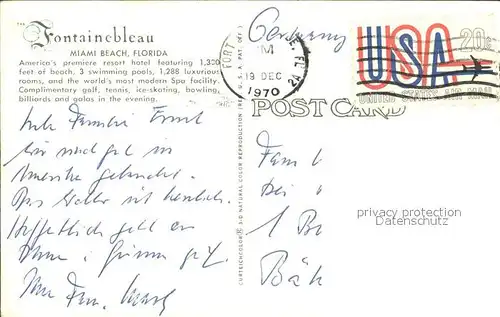 The
Fontainebleau
MIAMI BEACH, FLORIDA
America's premiere resort hotel featuring 1,300
feet of beach, 3 swimming pools, 1,288 luxurious
rooms, and the world's most modern Spa facility.
Complimentary golf, tennis, ice-skating, bowling,
billiards and galas in the evening.
Liebe Familie
wir sind gut in
Amerika gelandet.
Das Wetter ist herrlich.
Hoffentlich geht es
Ihnen gut.
Ihre Fam.
CURTEICHCOLOR® 3-D NATURAL COLOR REPRODUCTION
Germany
FORT
PM
19 DEC
1970
FLA
USA 20c
UNITED STATES AIR MAIL
POST CARD
Fam
bei
1 Be
privacy protection
Datenschutz